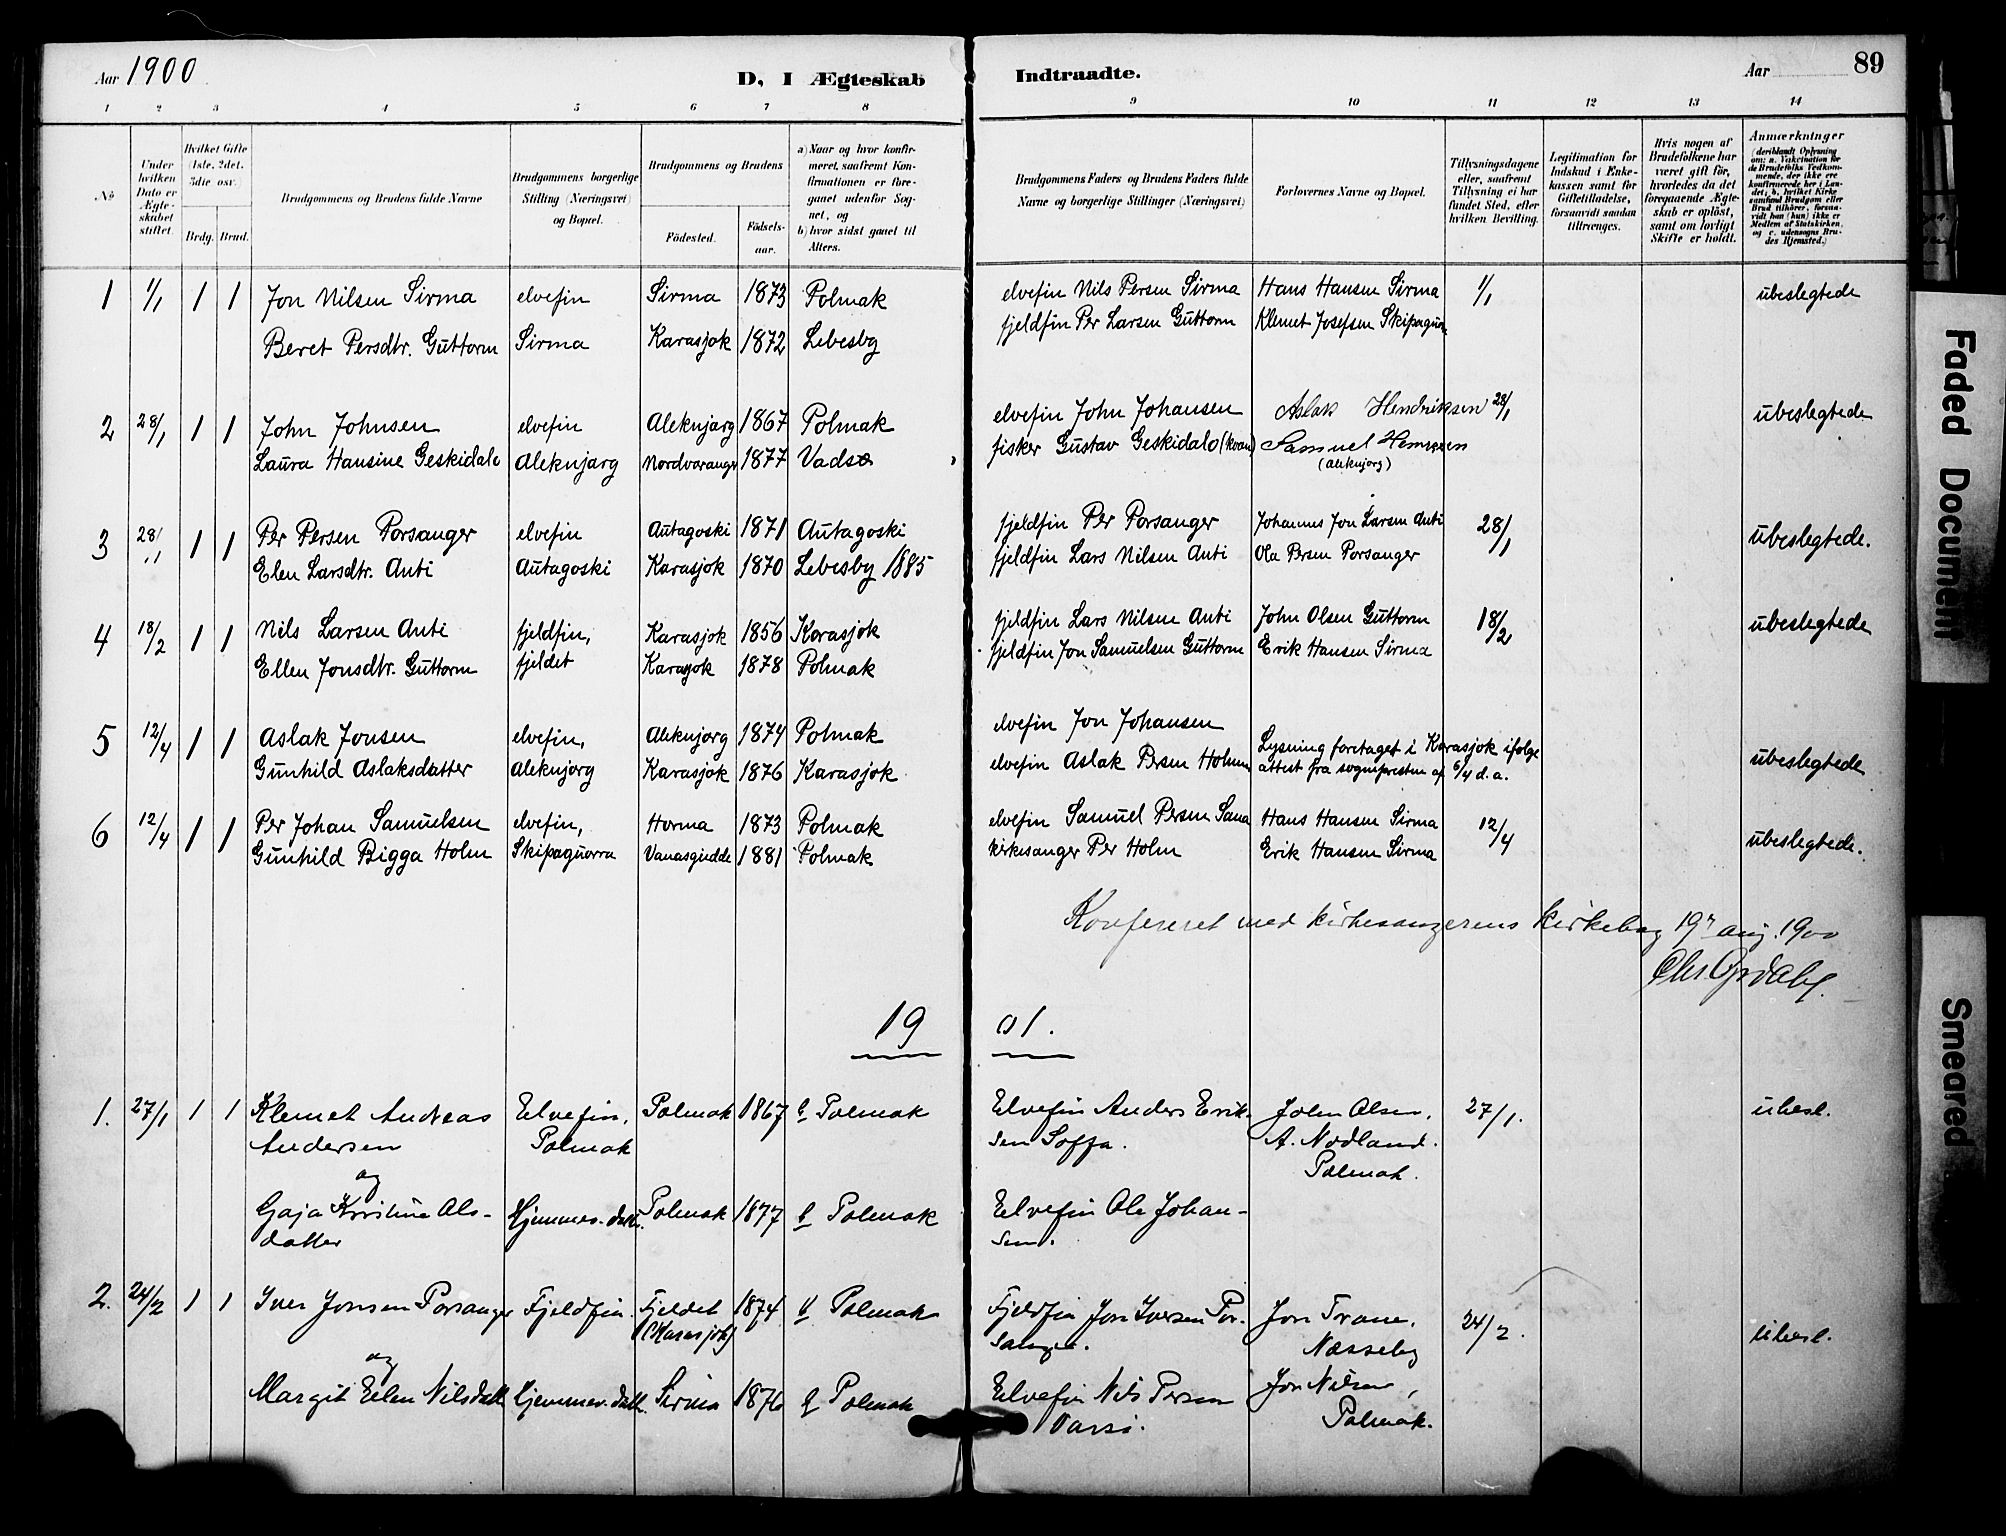 Aar 1900 D, I Ægteskab Indtraadte. Aar 89
1 2 3 4 5 6 7 8 9 10 11 12 13 14
No
Under hvilken Dato er Ægteskabet stiftet.
Hvilket Gifte (1ste, 2det, 3die osv.)
Brdg. Brud.
Brudgommens og Brudens fulde Navne
Brudgommens borgerlige Stilling (Næringsvei) og Bopæl.
Brudgommens og Brudens
Fødested. Fødselsaar.
a) Naar og hvor konfirmeret, saafremt Konfirmationen er foregaaet udenfor Sognet, og
b) hvor sidst gaaet til Alters.
Brudgommens Faders og Brudens Faders fulde Navne og borgerlige Stillinger (Næringsvei)
Forlovernes Navne og Bopæl.
Tillysningsdagene eller, saafremt Tillysning ei har fundet Sted, efter hvilken Bevilling.
Legitimation for Indskud i Enkekassen samt for Giftetilladelse, forsaavidt saadan tiltrænges.
Hvis nogen af Brudefolkene har været gift før, hvorledes da det foregaaende Ægteskab er opløst, samt om lovligt Skifte er holdt.
Anmærkninger (deriblandt Oplysning om: a. Vakcination for de Brudefolks Vedkommende, der ikke ere konfirmerede her i Landet; b. hvilket Kirkesamfund Brudgom eller Brud tilhører, forsaavidt han (hun) ikke er Medlem af Statskirken, og c. udensogns Brudes Hjemsted.)
1 1/1 1 1 Jon Nilsen Sirma elvefin Sirma 1873 Polmak elvefin Nils Persen Sirma Hans Hansen Sirma 1/1 ubeslegtede
Beret Persdtr. Guttorm Sirma Karasjok 1872 Lebesby fjeldfin Per Larsen Guttorm Klemet Josefsen Skipagurra
2 28/1 1 1 John Johnsen elvefin Aleknjarg 1867 Polmak elvefin John Johansen Aslak Hendriksen 28/1 ubeslegtede
Laura Hansine Geskidalo Aleknjarg Nordvaranger 1877 Vadsø fisker Gustav Geskidalo (kvæn) Samuel
(Aleknjarg)
3 28/1 1 1 Per Persen Porsanger elvefin Autagoski 1871 Autagoski fjeldfin Per Porsanger Johannes Jon Larsen Anti 28/1 ubeslegtede.
Elen Larsdtr. Anti Autagoski Karasjok 1870 Lebesby 1885 fjeldfin Lars Nilsen Anti Ola Persen Porsanger
4 18/2 1 1 Nils Larsen Anti fjeldfin, Karasjok 1856 Karasjok fjeldfin Lars Nilsen Anti John Olsen Guttorm 18/2 ubeslegtede
Ellen Jonsdtr. Guttorm fjeldet Karasjok 1878 Polmak fjeldfin Jon Samuelsen Guttorm Erik Hansen Sirma
5 12/4 1 1 Aslak Jonsen elvefin, Aleknjarg 1874 Polmak elvefin Jon Johansen Lysning foretaget i Karasjok ifølge ubeslegtede
Gunhild Aslaksdatter Aleknjarg Karasjok 1876 Karasjok elvefin Aslak Persen Holmen attest fra sognepresten af 6/4 d.a.
6 12/4 1 1 Per Johan Samuelsen elvefin, Horma 1873 Polmak elvefin Samuel Persen Sana Hans Hansen Sirma 12/4 ubeslegtede.
Gunhild Bigga Holm Skipaguorra Vanasgiedde 1881 Polmak kirkesanger Per Holm Erik Hansen Sirma
Konfereret med kirkesangerens kirkebog 19 aug. 1900
19 01.
1. 27/1 1 1 Klemet Andreas Elvefin, Polmak 1867 b Polmak Elvefin Anders Erik- John Olsen, 27/1. ubesl.
Andersen Polmak sen Soffa. A. Nodland.
og Polmak.
Gaja Kristine Ols- Hjemmev. datt. Polmak 1877 b Polmak Elvefin Ole Johan-
datter sen.
2. 24/2 1 1 Iver Jonsen Porsanger Fjeldfin Fjeldet 1874 b Polmak Fjeldfin Jon Iversen Por- Jon Trane, 24/2. ubesl.
(Karasjok) sanger. Næsseby
og
Margit Elen Nilsdatt. Hjemmev. datt. Sirma 1876 b Polmak Elvefin Nils Persen Jon Nilsen,
Varsi. Polmak.
Faded Document
Smeared